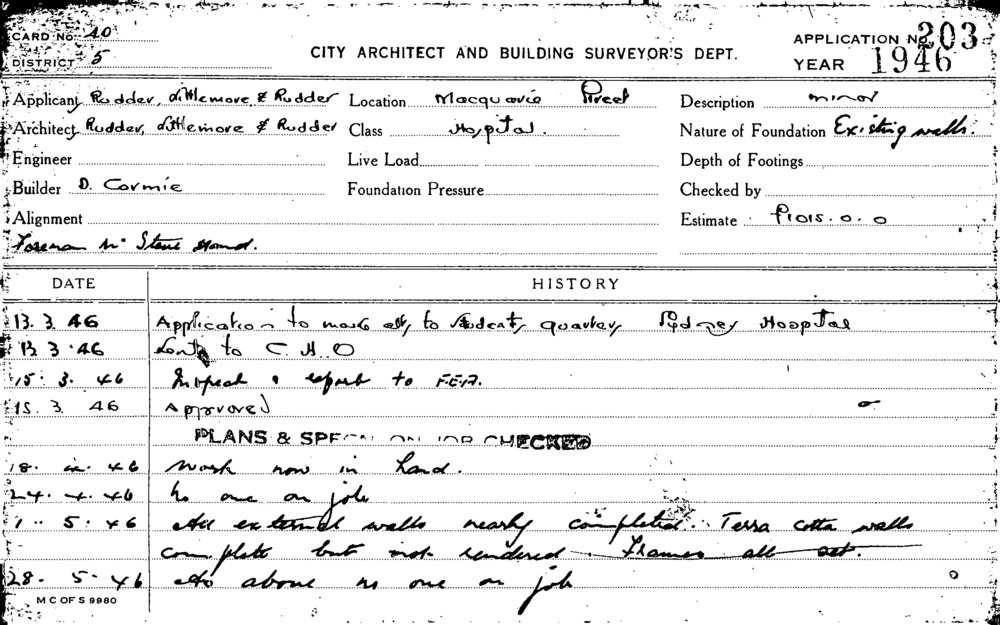 CARD No. 40
DISTRICT 5
CITY ARCHITECT AND BUILDING SURVEYOR'S DEPT.
APPLICATION No. 203
YEAR 1946
Applicant Rudder, Littlemore & Rudder Location Macquarie Street Description minor
Architect Rudder, Littlemore & Rudder Class Hospital. Nature of Foundation Existing walls.
Engineer Live Load Depth of Footings
Builder D. Cormie Foundation Pressure Checked by
Alignment Estimate £1015.0.0
Foreman Mr
DATE HISTORY
13. 3. 46 Application to make alts, to students quarters, Sydney Hospital
13. 3. 46 to C H O
15. 3. 46 Inspect & report to F.E.A.
15. 3. 46 Approved
PLANS & SPEC ON JOB CHECKED
18. 4. 46 Work now in hand.
24. 4. 46 No one on job
1. 5. 46 All external walls nearly completed. Terra cotta walls
complete but not rendered. Frames all set.
28. 5. 46 As above no one on job
M C OF S 9980